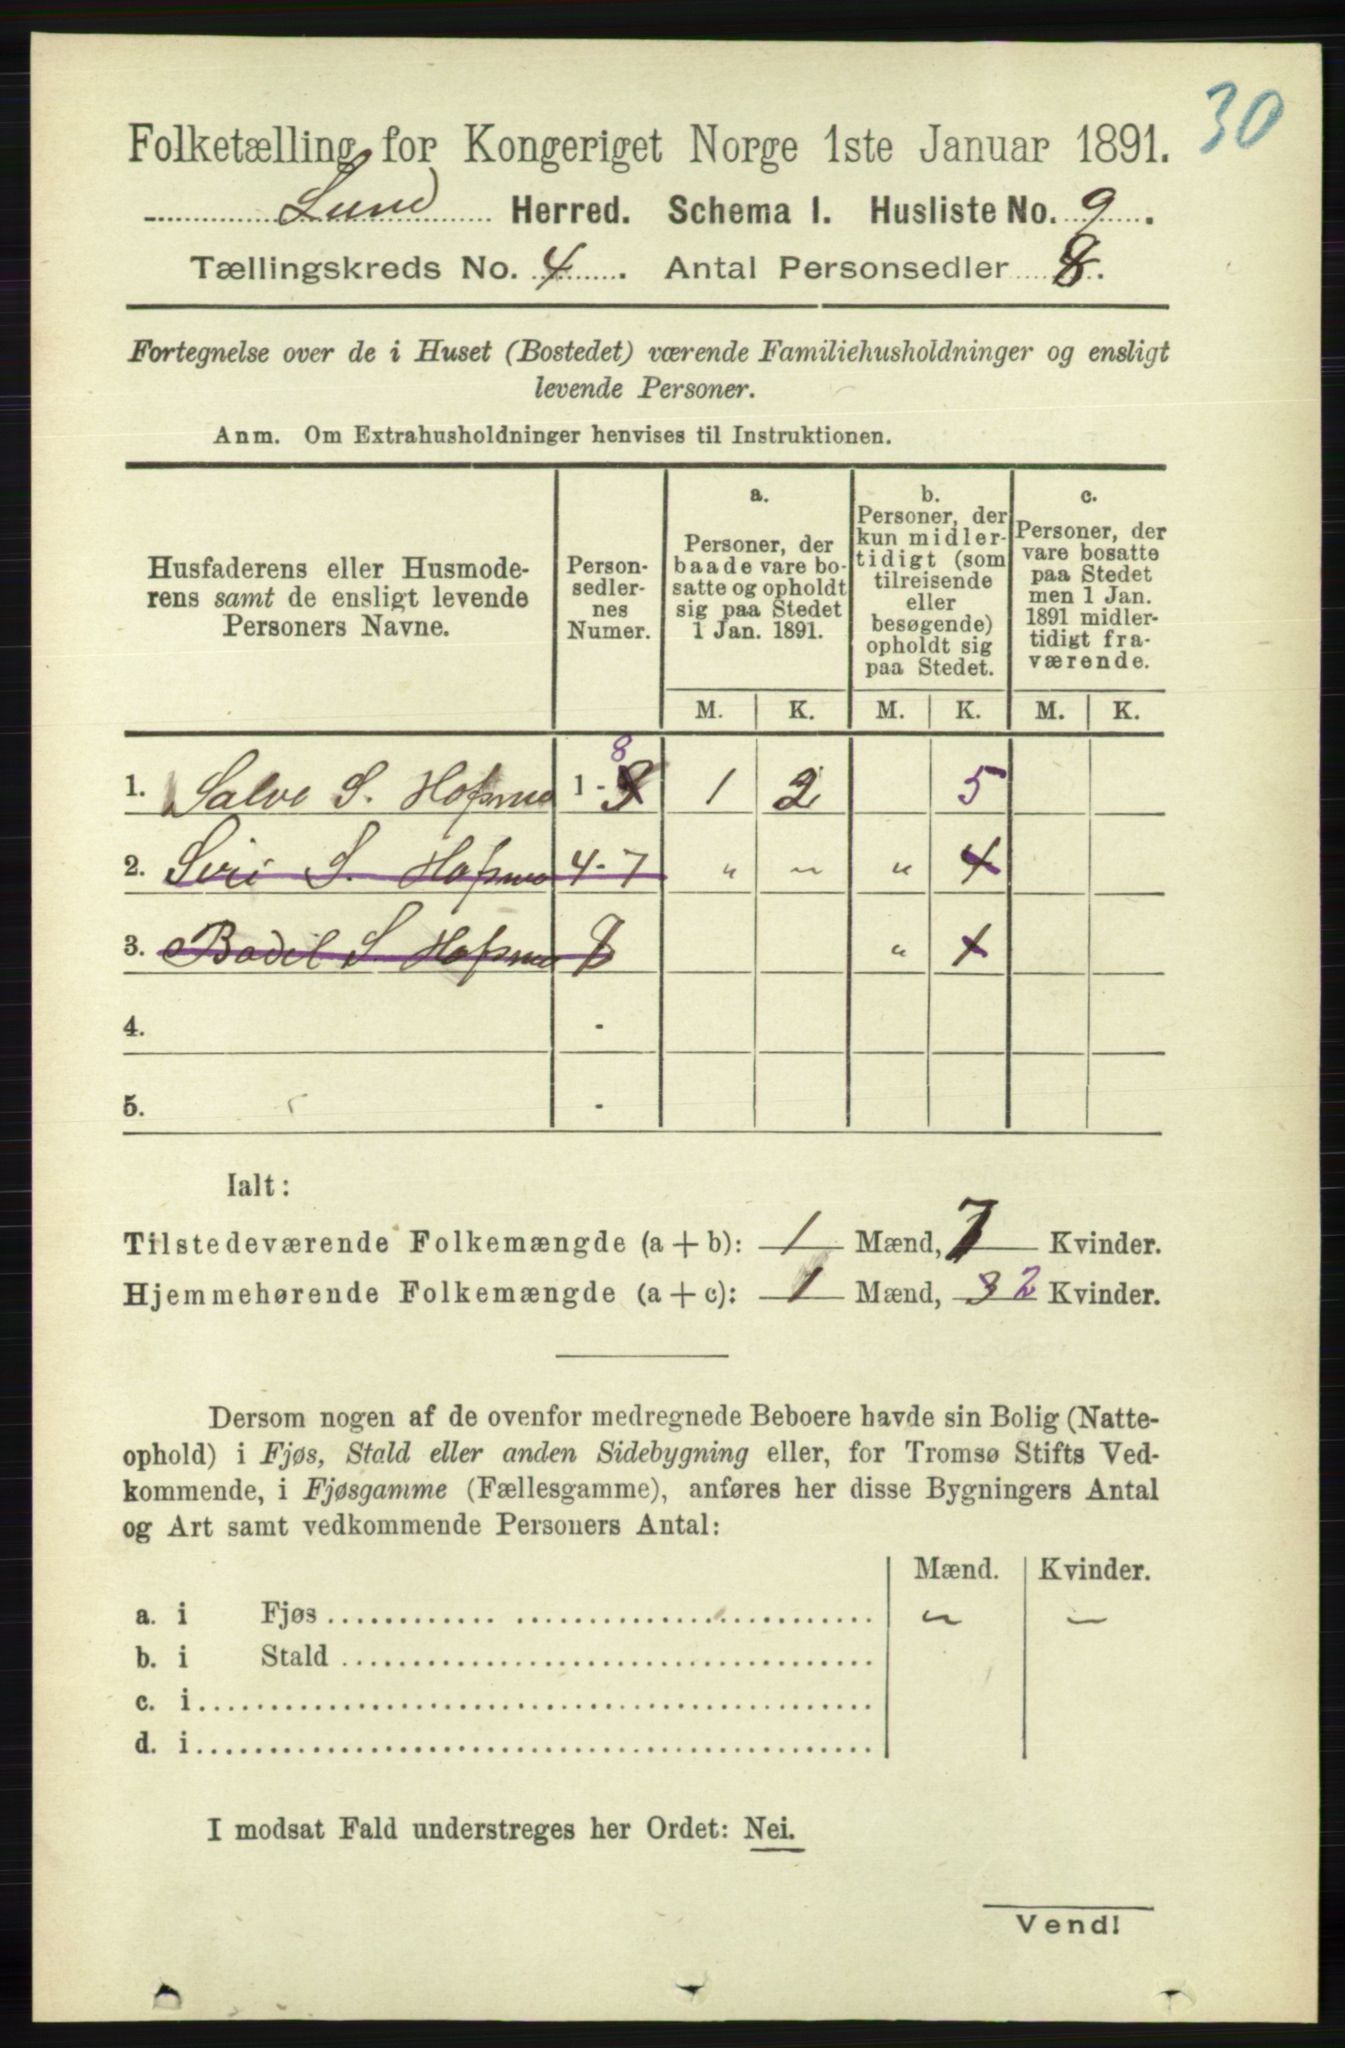 30
Folketælling for Kongeriget Norge 1ste Januar 1891.
Lund Herred. Schema I. Husliste No. 9.
Tællingskreds No. 4. Antal Personsedler 8.
Fortegnelse over de i Huset (Bostedet) værende Familiehusholdninger og ensligt
levende Personer.
Anm. Om Extrahusholdninger henvises til Instruktionen.
Husfaderens eller Husmode-
rens samt de ensligt levende
Personers Navne.
Person-
sedler-
nes
Numer.
a.
Personer, der
baade vare bo-
satte og opholdt
sig paa Stedet
1 Jan. 1891.
b.
Personer, der
kun midler-
tidigt (som
tilreisende
eller
besøgende)
opholdt sig
paa Stedet.
c.
Personer, der
vare bosatte
paa Stedet
men 1 Jan.
1891 midler-
tidigt fra-
værende.
M. K. M. K. M. K.
8
1. Salve S. Hofsmo 1 - 3 1 2 5
2. Siri S. Hofsmo 4 - 7 " " " 4
3. Bodil S. Hofsmo 8 " 1
4. -
5. -
Ialt:
Tilstedeværende Folkemængde (a + b): 1 Mænd, 7 Kvinder.
Hjemmehørende Folkemængde (a + c): 1 Mænd, 3 2 Kvinder.
Dersom nogen af de ovenfor medregnede Beboere havde sin Bolig (Natte-
ophold) i Fjøs, Stald eller anden Sidebygning eller, for Tromsø Stifts Ved-
kommende, i Fjøsgamme (Fællesgamme), anføres her disse Bygningers Antal
og Art samt vedkommende Personers Antal:
Mænd. Kvinder.
a. i Fjøs " —
b. i Stald
c. i
d. i
I modsat Fald understreges her Ordet: Nei.
Vend!